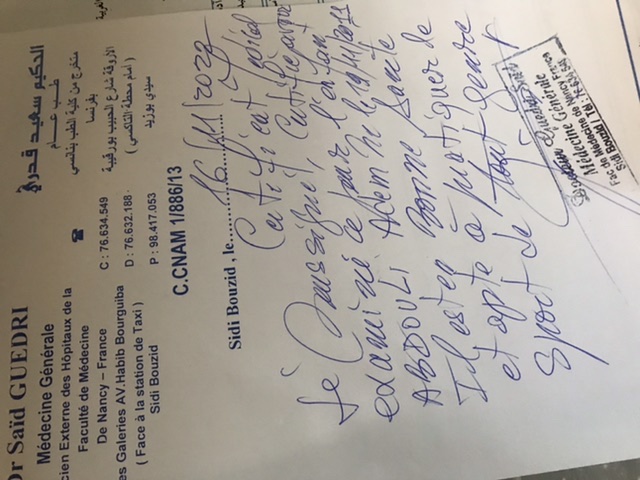 Dr Saïd GUEDRI
Médecine Générale
cien Externe des Hôpitaux de la
Faculté de Médecine
De Nancy – France
es Galeries AV.Habib Bourguiba
( Face à la station de Taxi )
Sidi Bouzid
الحكيم سعيد قدري
طب عام
متخرج من كلية الطب بنانسي
بفرنسا
الأروقة شارع الحبيب بورقيبة
( أمام محطة التاكسي )
سيدي بوزيد
C : 76.634.549
D : 76.632.188
P : 98.417.053
C.CNAM 1/886/13
Sidi Bouzid , le 16/11/2022
Certificat médical
Je soussigné, certifie avoir
examiné ce jour l'enfant
ABDOULI Adem né le 19/11/2011
Il est en bonne santé
et apte à pratiquer de
Sport de tout genre
Médecine Générale
Fac de Médecine de Nancy
Sidi Bouzid Tél :